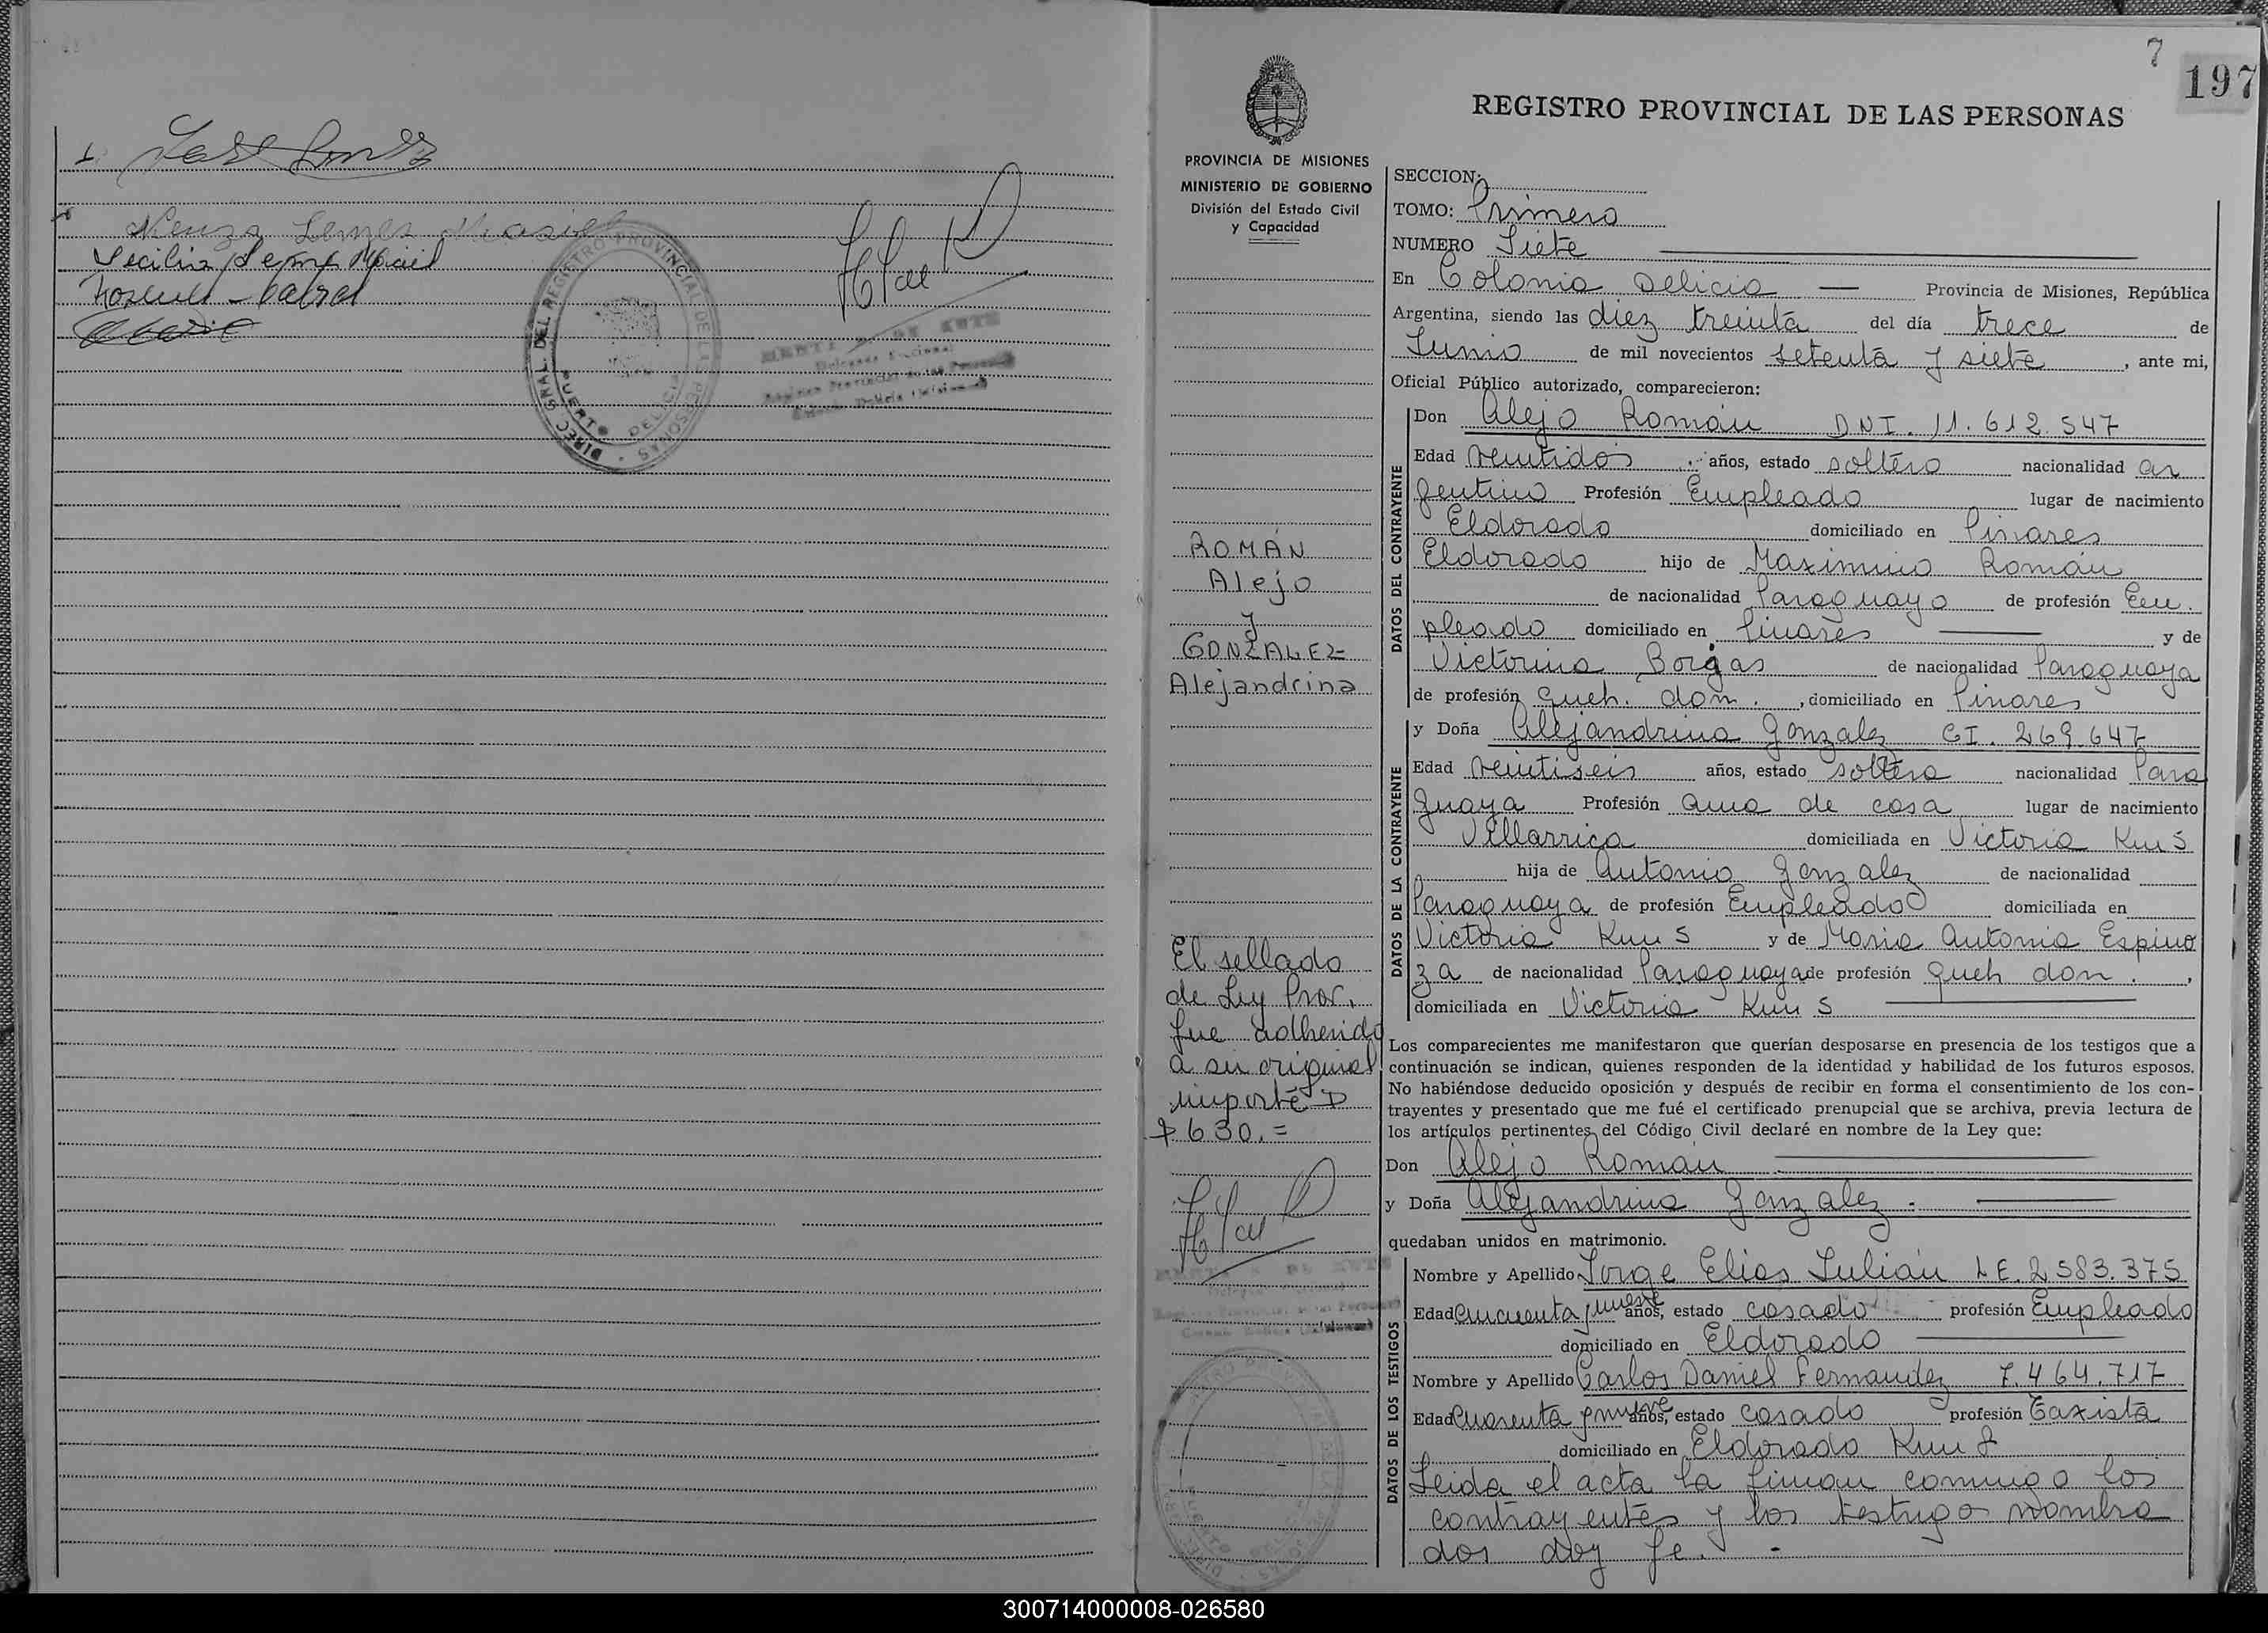 7
197
REGISTRO PROVINCIAL DE LAS PERSONAS
PROVINCIA DE MISIONES
MINISTERIO DE GOBIERNO
División del Estado Civil
y Capacidad
DIREC. GRAL. DEL REGISTRO PROVINCIAL DE LAS PERSONAS
PUERTO DELICIA
ROMÁN
Alejo
y
GONZALEZ
Alejandrina
El sellado
de Ley Prov.
fue adherido
a su original
importe D
$ 630.=
SECCION:
TOMO: Primero
NUMERO Siete
En Colonia Delicia Provincia de Misiones, República
Argentina, siendo las diez treinta del día trece de
Junio de mil novecientos setenta y siete, ante mi,
Oficial Público autorizado, comparecieron:
DATOS DEL CONTRAYENTE
Don Alejo Román DNI. 11.612.547
Edad veintidos años, estado soltero nacionalidad ar
gentino Profesión Empleado lugar de nacimiento
Eldorado domiciliado en Pinares
Eldorado hijo de Maximino Román
de nacionalidad Paraguayo de profesión Em.
pleado domiciliado en Pinares y de
Victorina Borjas de nacionalidad Paraguaya
de profesión queh. dom., domiciliado en Pinares
DATOS DE LA CONTRAYENTE
y Doña Alejandrina Gonzalez CI. 269.647
Edad veintiseis años, estado soltera nacionalidad Para
guaya Profesión ama de casa lugar de nacimiento
Villarrica domiciliada en Victoria Km 5
hija de Antonio Gonzalez de nacionalidad
Paraguaya de profesión Empleado domiciliada en
Victoria Km 5 y de Maria Antonia Espino
za de nacionalidad Paraguaya de profesión queh dom.,
domiciliada en Victoria Km 5
Los comparecientes me manifestaron que querían desposarse en presencia de los testigos que a
continuación se indican, quienes responden de la identidad y habilidad de los futuros esposos.
No habiéndose deducido oposición y después de recibir en forma el consentimiento de los con-
trayentes y presentado que me fué el certificado prenupcial que se archiva, previa lectura de
los artículos pertinentes del Código Civil declaré en nombre de la Ley que:
Don Alejo Roman
y Doña Alejandrina Gonzalez.
quedaban unidos en matrimonio.
DATOS DE LOS TESTIGOS
Nombre y Apellido Jorge Elias Julián LE. 2583.375
Edad cincuenta y nueve años, estado casado profesión Empleado
domiciliado en Eldorado
Nombre y Apellido Carlos Daniel Fernandez 7.464.717
Edad Cuarenta y nueve años, estado casado profesión Taxista
domiciliado en Eldorado Km 2
Leida el acta la firman conmigo los
contrayentes y los testigos nombra
dos doy fe.
300714000008-026580